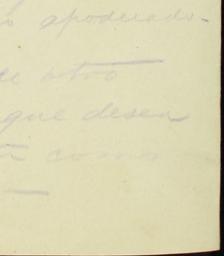 apoderado.
otro
que desea
como